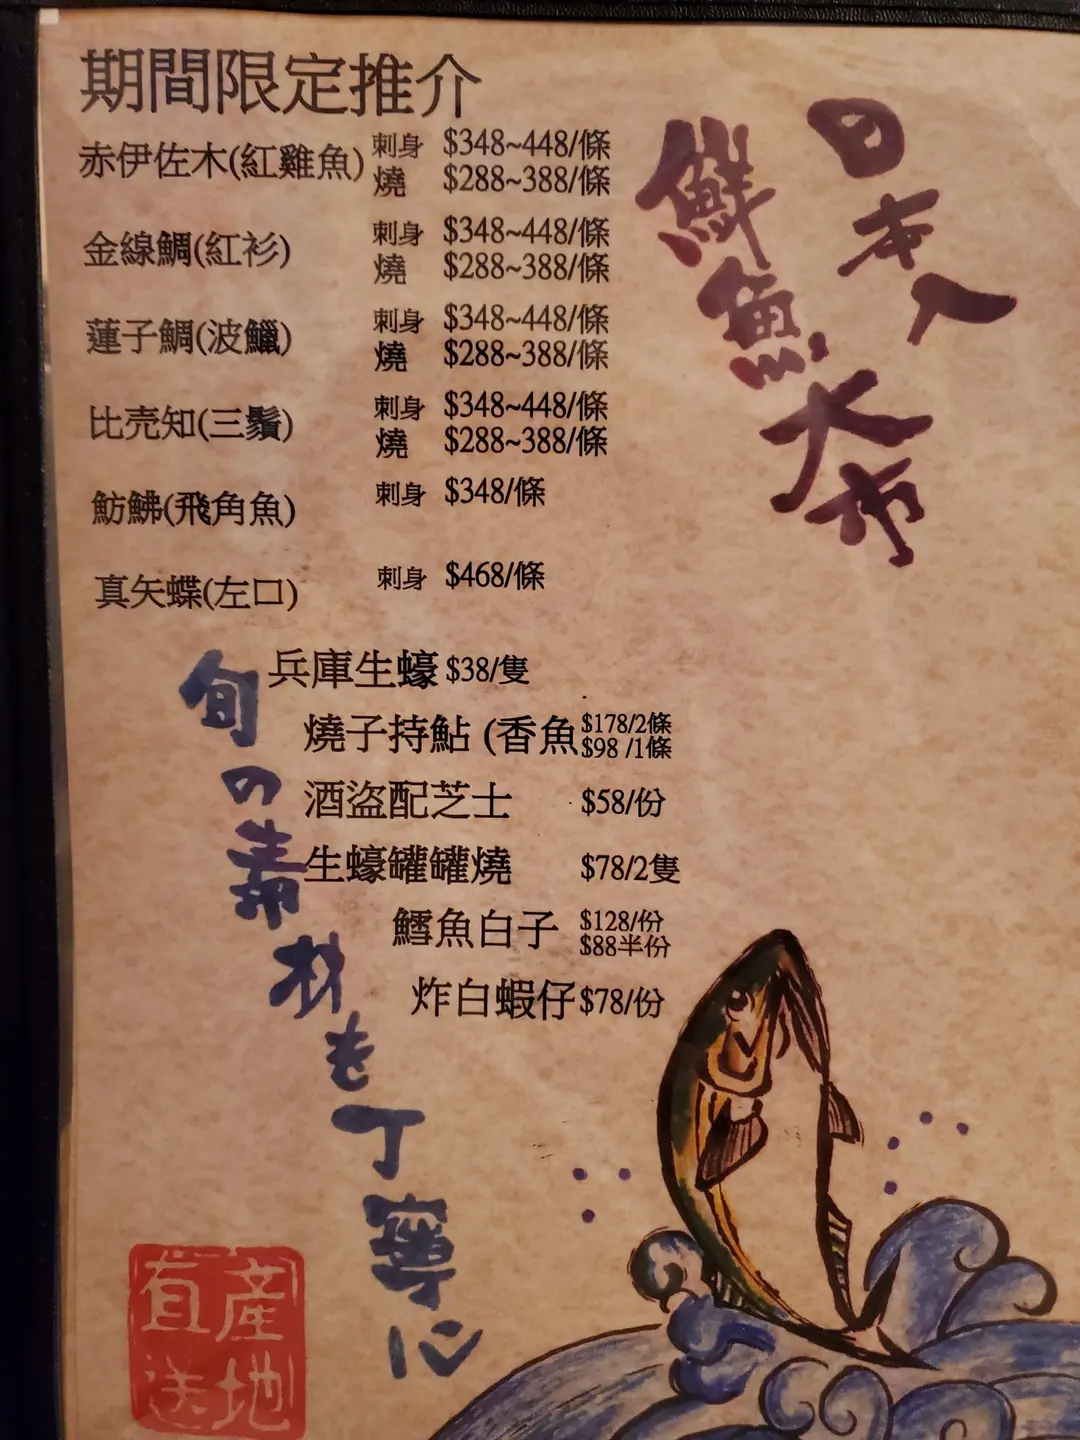 期間限定推介
赤伊佐木(紅雞魚) 刺身 $348~448/條
燒 $288~388/條
金線鯛(紅衫) 刺身 $348~448/條
燒 $288~388/條
蓮子鯛(波鱲) 刺身 $348~448/條
燒 $288~388/條
比売知(三鬚) 刺身 $348~448/條
燒 $288~388/條
魴鮄(飛角魚) 刺身 $348/條
真矢蝶(左口) 刺身 $468/條
兵庫生蠔 $38/隻
燒子持鮎 (香魚 $178/2條
$98 /1條
酒盜配芝士 $58/份
生蠔罐罐燒 $78/2隻
鱈魚白子 $128/份
$88半份
炸白蝦仔 $78/份
日本人
鮮魚大市
旬の素材を丁寧に
産地
直送